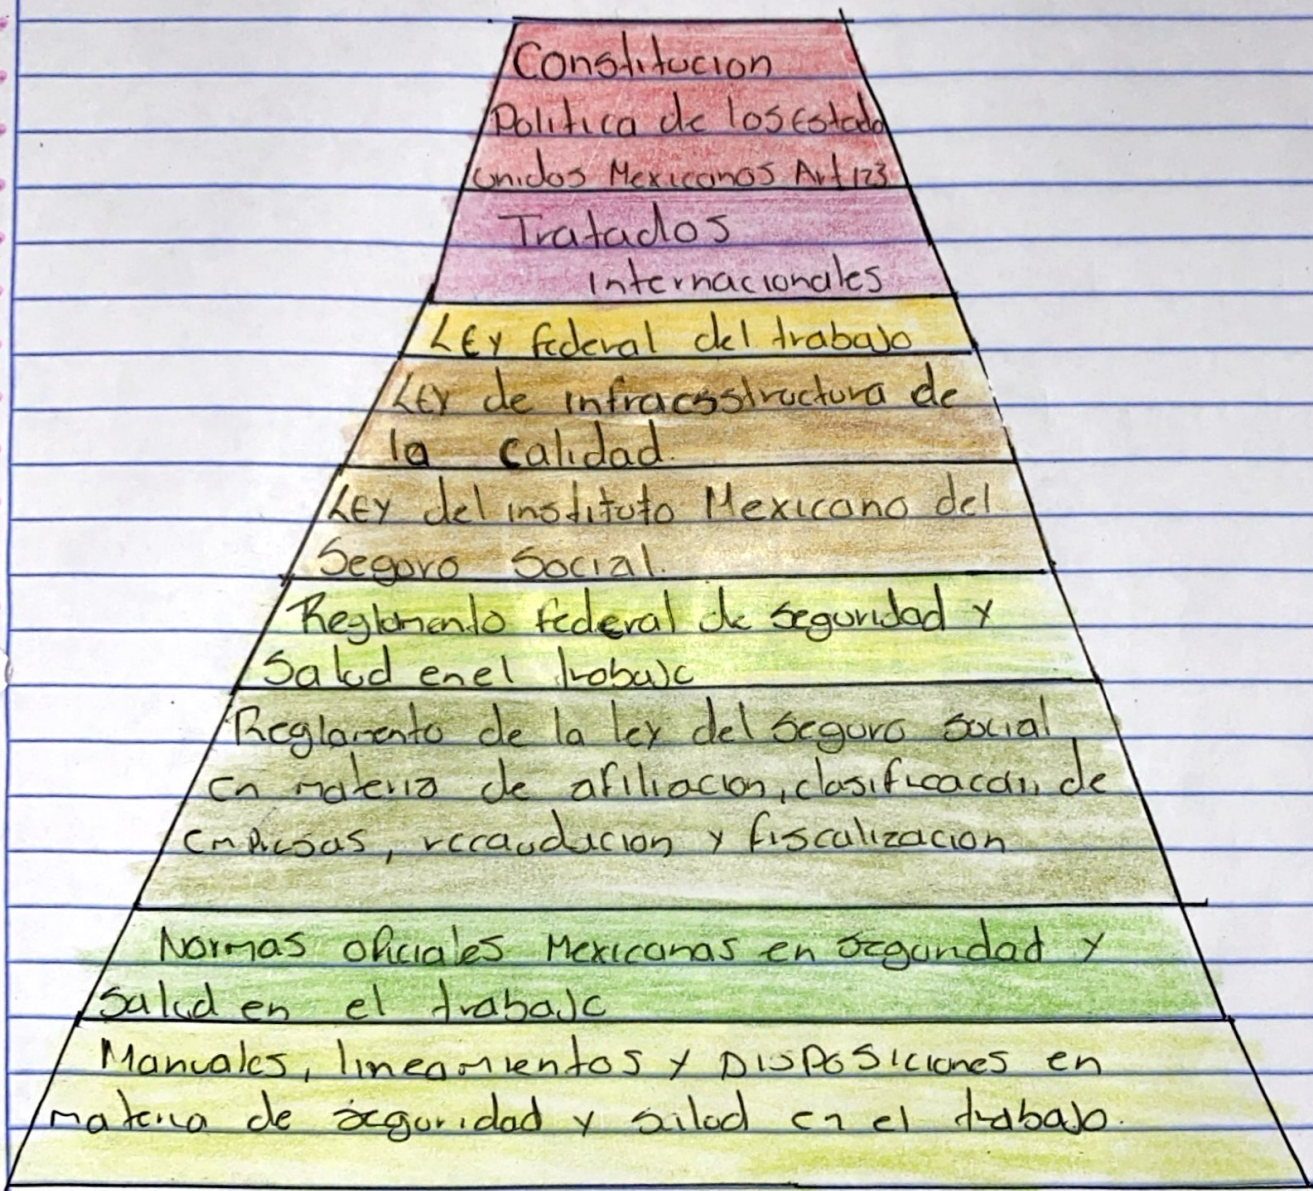 Constitucion
Politica de los Estado
unidos Mexicanos Art 123
Tratados
Internacionales
LEY federal del trabajo
LEY de infraesstructura de
la calidad.
LEY del instituto Mexicano del
Seguro Social.
Reglamento federal de seguridad y
Salud en el trabajo
Reglamento de la ley del seguro social,
en materia de afiliacion, clasificacion, de
empresas, reccaudacion y fiscalizacion
Normas oficiales Mexicanas en seguridad y
Salud en el trabajo
Manuales, lineamientos y DISPOSICIones en
materia de seguridad y salud en el trabajo.